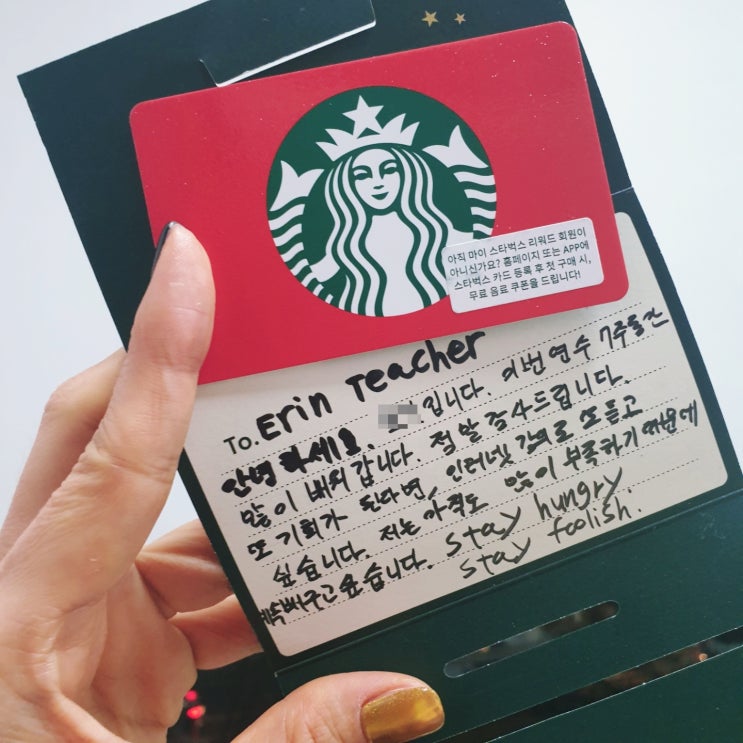 아직 마이 스타벅스 리워드 회원이
아니신가요? 홈페이지 또는 APP에
스타벅스 카드 등록 후 첫 구매 시,
무료 음료 쿠폰을 드립니다!
To. Erin Teacher
안녕하세요. 입니다. 이번 연수 7주동안
많이 배워 갑니다. 정말 감사드립니다.
또 기회가 된다면, 인터넷 강의로 또 듣고
싶습니다. 저는 아직도 많이 부족하기 때문에
계속 배우고 싶습니다. stay hungry
stay foolish.